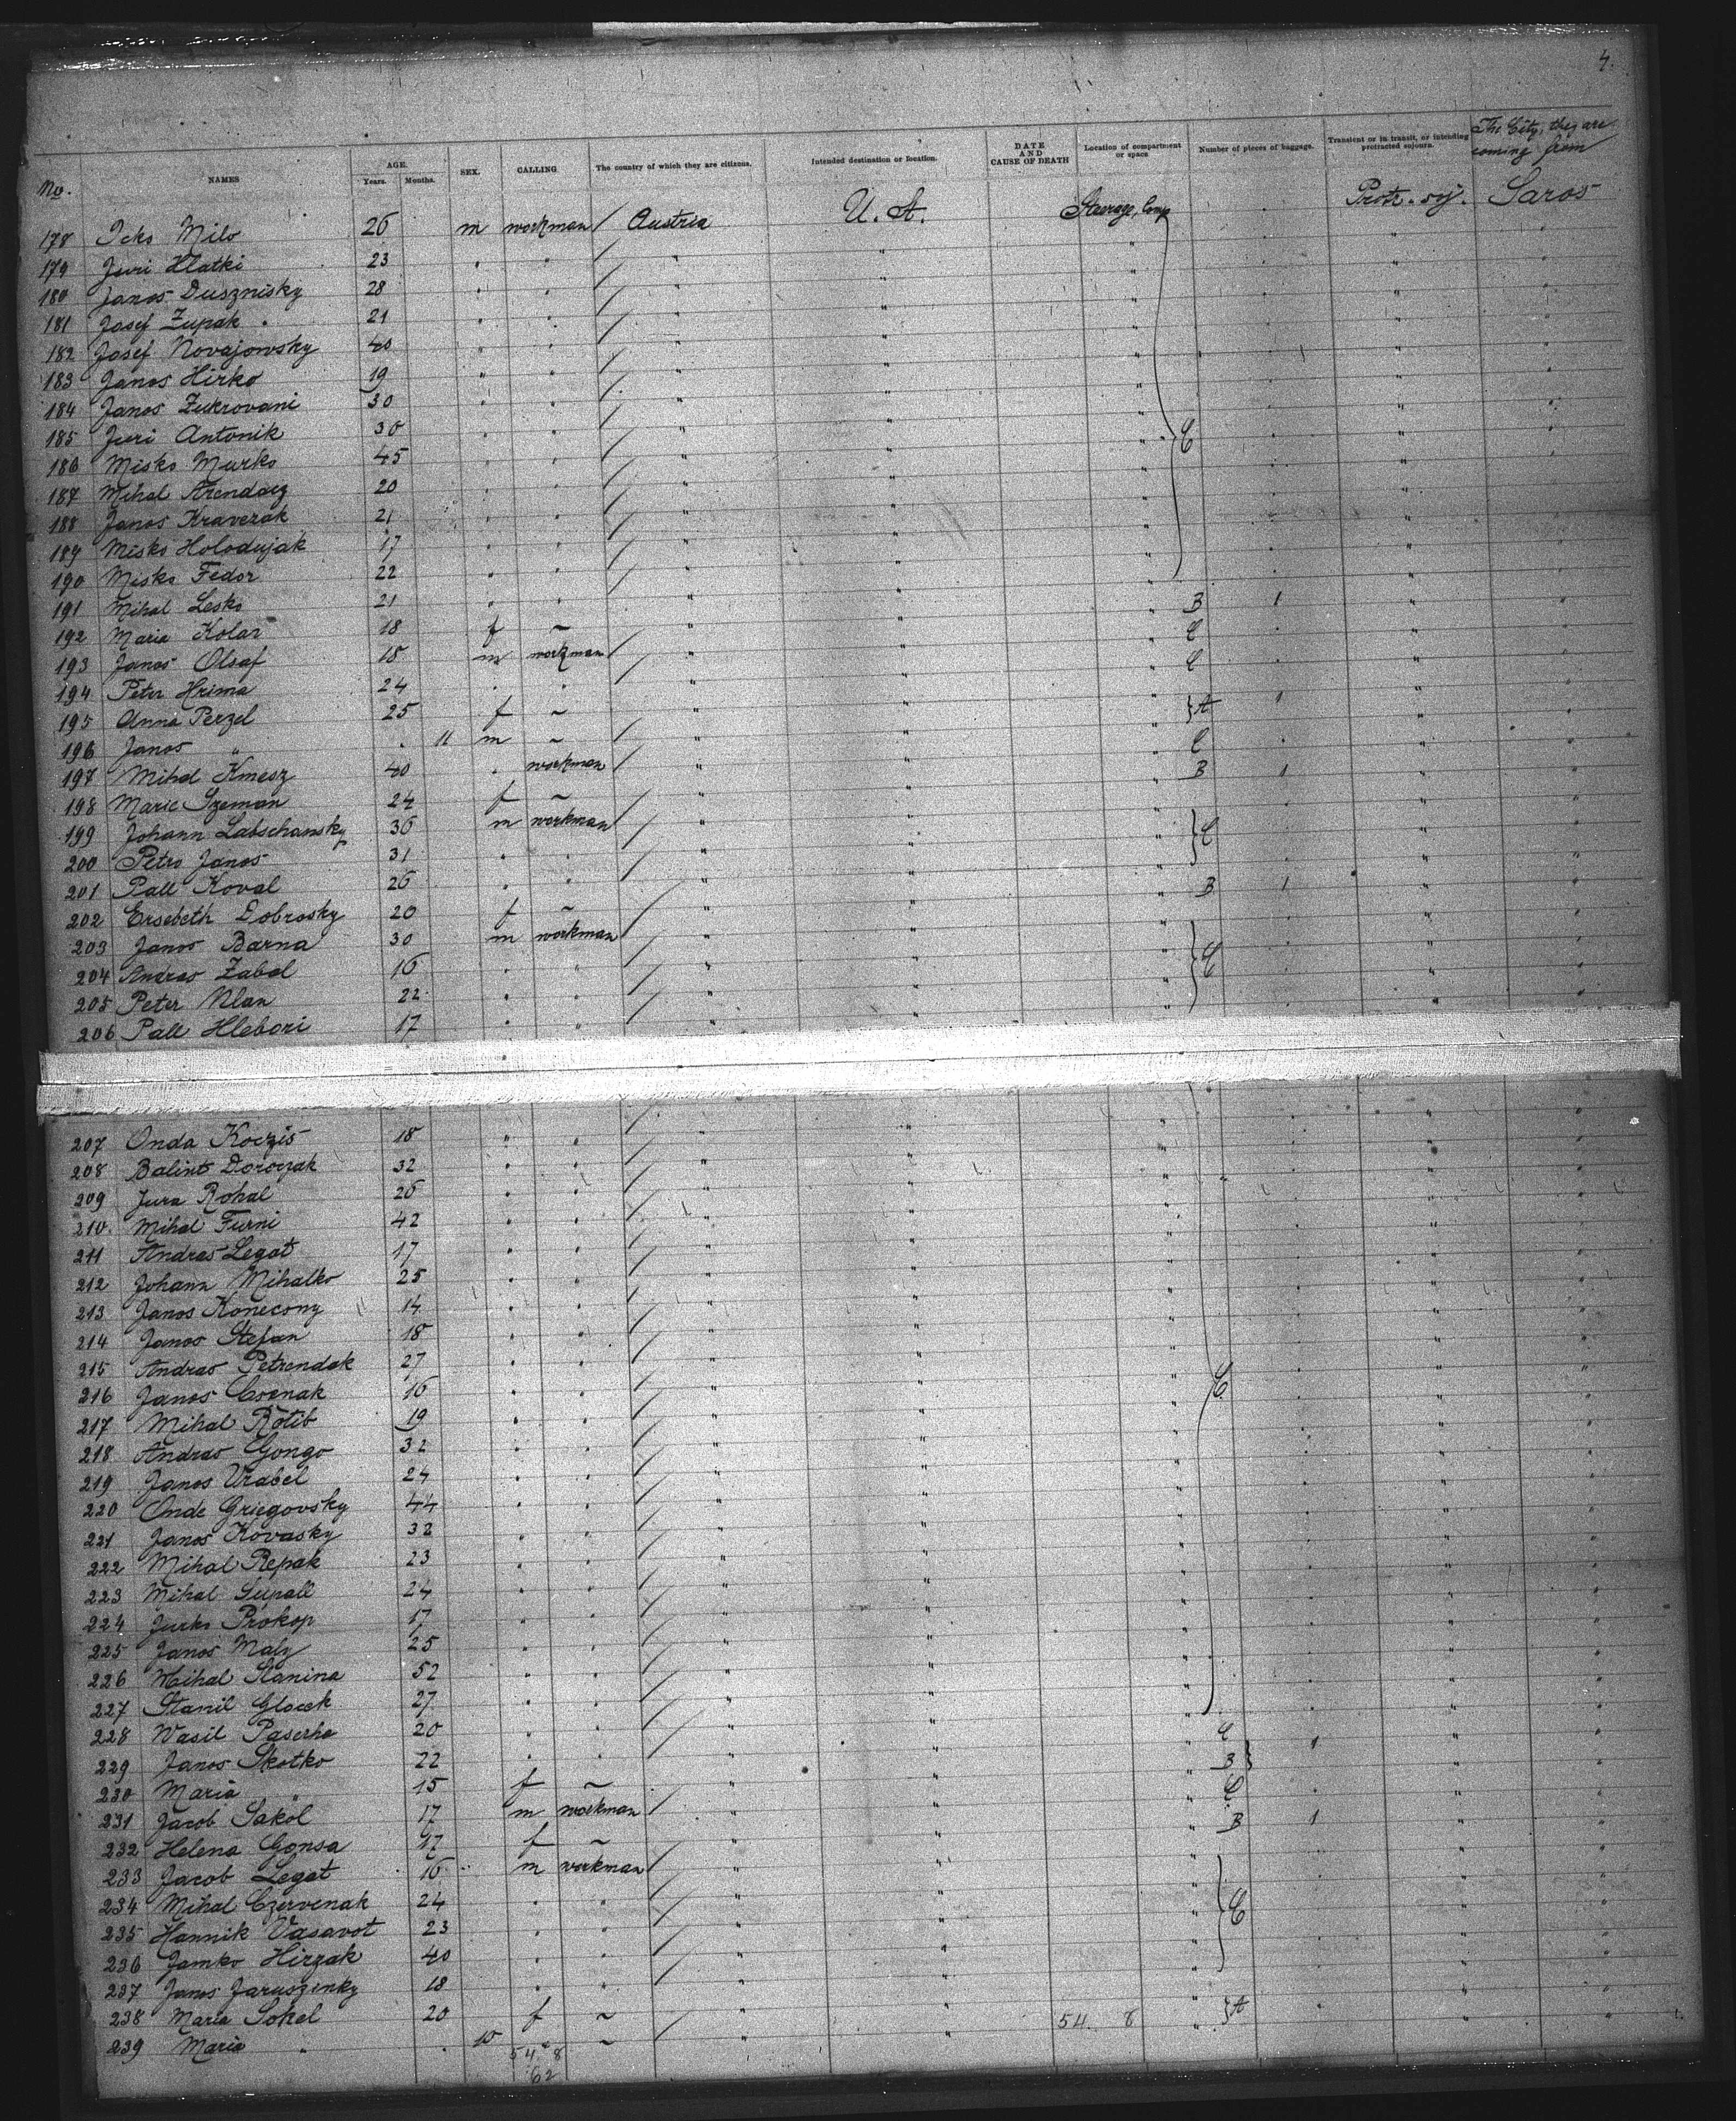 4.
No. NAMES AGE. Years. Months. SEX. CALLING The country of which they are citizens. Intended destination or location. DATE AND CAUSE OF DEATH Location of compartment or space Number of pieces of baggage. Transient or in transit, or intending protracted sojourn. The City, they are coming from
178 Icko Milo 26 m workman / Austria U. A. Steerage, Comp Protr. soj. Saros
179 Juri Hlatki 23 " " / " " " " "
180 Janos Dusznisky 28 " " / " " " " "
181 Josef Zupak 21 " " / " " " " "
182 Josef Novajowsky 40 " " / " " " " "
183 Janos Hirko 19 " " / " " " " "
184 Janos Zukrovani 30 " " / " " " " "
185 Juri Antonik 30 " " / " " " C " "
186 Misko Murko 45 " " / " " " " "
187 Mihal Arendacz 20 " " / " " " " "
188 Janos Kraverak 21 " " / " " " " "
189 Misko Holodujak 17 " " / " " " " "
190 Misko Fedor 22 " " / " " " " "
191 Mihal Lesko 21 " " " " " B 1 " "
192 Maria Kolar 18 f ~ " " " C " "
193 Janos Olsaf 18 m workman / " " " C " "
194 Peter Hrima 24 " " / " " " " "
195 Anna Perzel 25 f ~ " " " } A 1 " "
196 Janos " 11 m ~ / " " " C " "
197 Mihal Kmesz 40 " workman / " " " B 1 " "
198 Marie Szeman 24 f ~ " " " " "
199 Johann Labschansky 36 m workman / " " " } C " "
200 Petro Janos 31 " " / " " " " "
201 Pall Koval 26 " " / " " " B 1 " "
202 Ersebeth Dobrosky 20 f ~ " " " " "
203 Janos Barna 30 m workman / " " " " "
204 Andras Zabal 16 " " / " " " } C " "
205 Peter Mlan 22 " " / " " " " "
206 Pall Hlebori 17 " " / " " " " "
207 Onda Koczis 18 " " / " " " " "
208 Balint Doroczak 32 " " / " " " " "
209 Jura Rohal 26 " " / " " " " "
210. Mihal Furni 42 " " / " " " " "
211 Andras Legat 17 " " / " " " " "
212 Johann Mihalko 25 " " / " " " " "
213 Janos Konecony 14 " " / " " " " "
214 Janos Stefan 18 " " / " " " " "
215 Andras Petrendak 27 " " / " " " " "
216 Janos Csenak 16 " " / " " " C " "
217 Mihal Rotib 19 " " / " " " " "
218 Andras Gongo 32 " " / " " " " "
219 Janos Vrabel 24 " " / " " " " "
220 Onde Griegovsky 44 " " / " " " " "
221 Janos Kovasky 32 " " / " " " " "
222 Mihal Repak 23 " " / " " " " "
223 Mihal Supall 24 " " / " " " " "
224 Jurko Prokop 17 " " / " " " " "
225 Janos Maly 25 " " / " " " " "
226 Mihal Stanina 52 " " / " " " " "
227 Stanil Glocek 27 " " / " " " " "
228 Wasil Paserha 20 " " / " " " C " "
229 Janos Skotko 22 " " / " " " B } 1 " "
230 Maria " 15 f ~ " " " C " "
231 Jacob Sakol 17 m workman / " " " B 1 " "
232 Helena Gonsa 17 f ~ " " " " "
233 Jacob Legat 16 m workman / " " " " "
234 Mihal Czervenak 24 " " / " " " } C " "
235 Hannik Vasavot 23 " " / " " " " "
236 Jamko Hirzak 40 " " / " " " " "
237 Janos Jaruszinky 18 " " / " " " " "
238 Maria Sokel 20 f ~ " " 54. 8 " } A " "
239 Maria " 10 " ~ / " " " " "
54 8
62